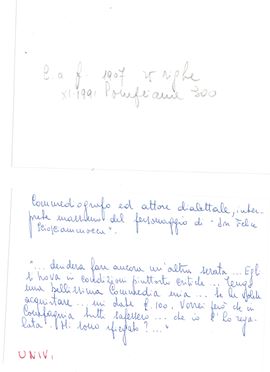 L. a f. 1907 25 righe
XI-1991 Pontremoli 300
Commediografo ed attore dialettale, inter-
prete massimo del personaggio di "Don Felice
Sciosciammocca".
"... dandera fare ancora un'altra serata... Egli
si trova in condizioni piuttosto critiche... Tengo
una bellissima Commedia mia... Se la volete
acquistare... mi date £ 100. Vorrei però che in
Compagnia tutti sapessero... che io £ l'ho rega-
lata". Mi sono spiegato?..."
UNIV.